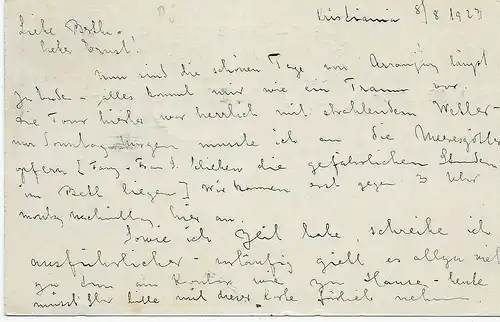 Kristiania 8/8 1923
Liebe Berth.
lieber Ernst!
Nun sind die schönen Tage von Arranjuez längst
zu Ende - alles kommt mir wie ein Traum vor.
die Tour hierher war herrlich mit strahlendem Wetter -
nur Sonntag Morgen musste ich an die Meeresgötter
opfern [ Fany - Frau I. blieben die gefährlichen Stunden
im Bett liegen ] wir kamen erst gegen 3 Uhr
montag nachmittag hier an.
Sowie ich Zeit habe, schreibe ich
ausführlicher - vorläufig giebt es allzu viel
zu tun am Kontor wie zu Hause - heute
müsst Ihr bitte mit dieser Karte fürlieb nehmen.